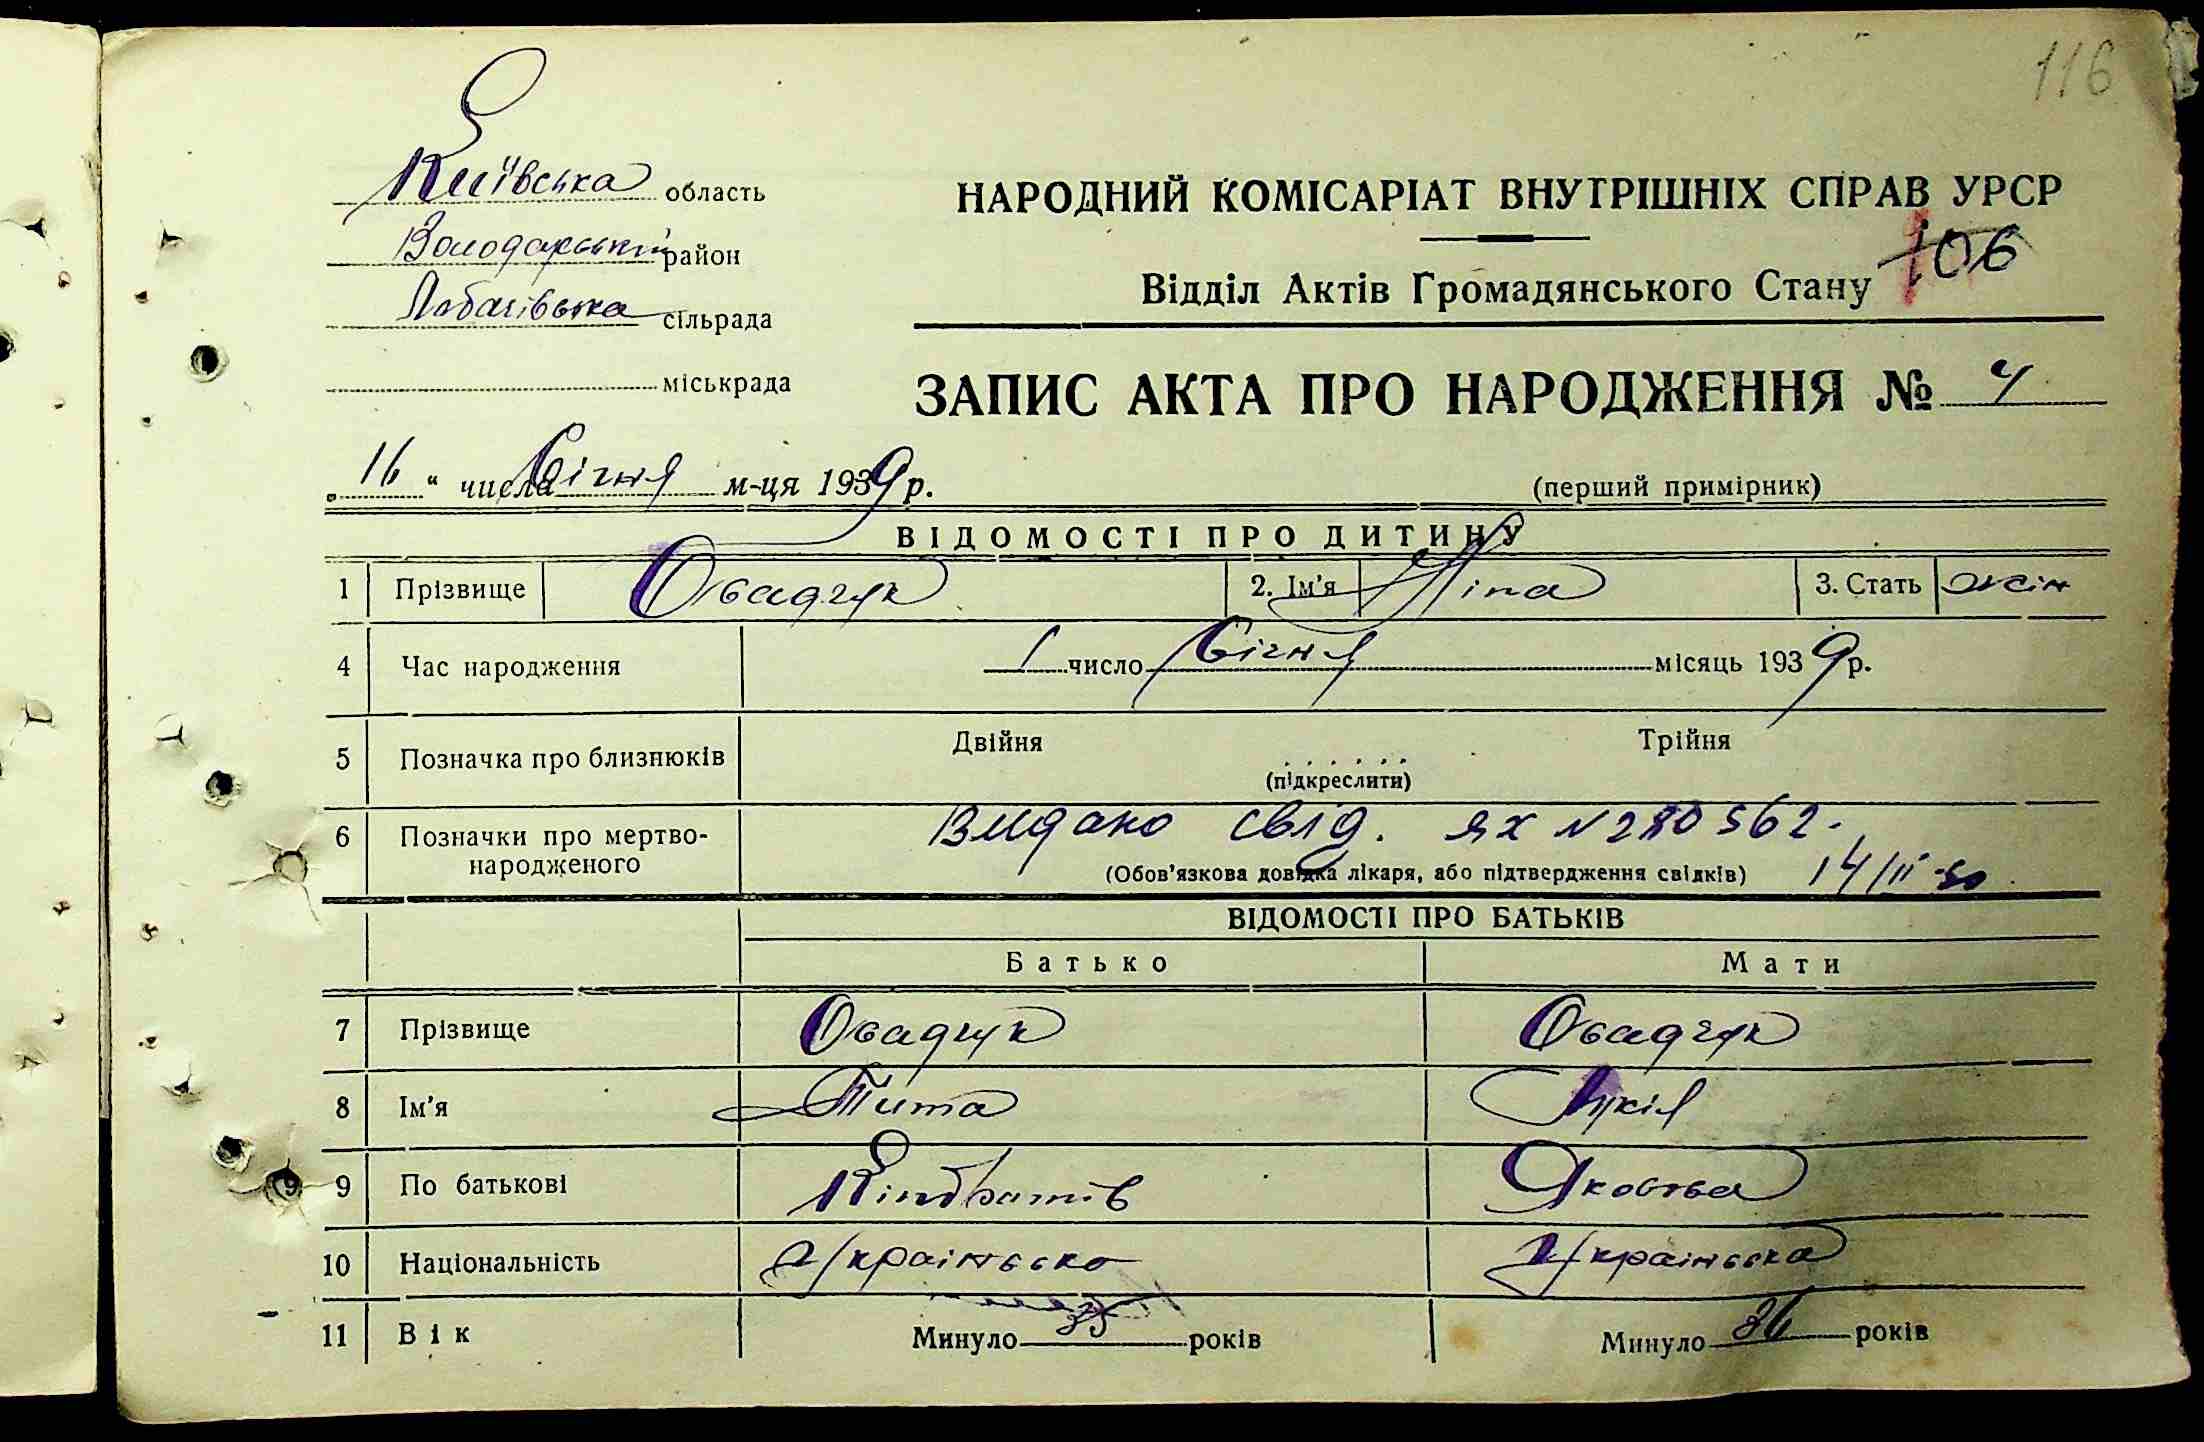 116
Київська область
Володарський район
Лобачівська сільрада
міськрада
НАРОДНИЙ КОМІСАРІАТ ВНУТРІШНІХ СПРАВ УРСР
Відділ Актів Громадянського Стану
106
ЗАПИС АКТА ПРО НАРОДЖЕННЯ № 4
„16“ числа Січня м-ця 1939 р.
(перший примірник)
ВІДОМОСТІ ПРО ДИТИНУ
1 Прізвище Овадчук 2. Ім'я Ніна 3. Стать жін
4 Час народження 1 число Січня місяць 1939 р.
5 Позначка про близнюків Двійня Трійня
(підкреслити)
6 Позначки про мертво-
народженого
Видано свід. ЯХ N 280562.
(Обов'язкова довідка лікаря, або підтвердження свідків) 14/II-50
ВІДОМОСТІ ПРО БАТЬКІВ
Батько Мати
7 Прізвище Овадчук Овадчук
8 Ім'я Тита
9 9 По батькові Кіндратів Яковова
10 Національність Україньско Україньска
11 Вік Минуло 35 років Минуло 36 років